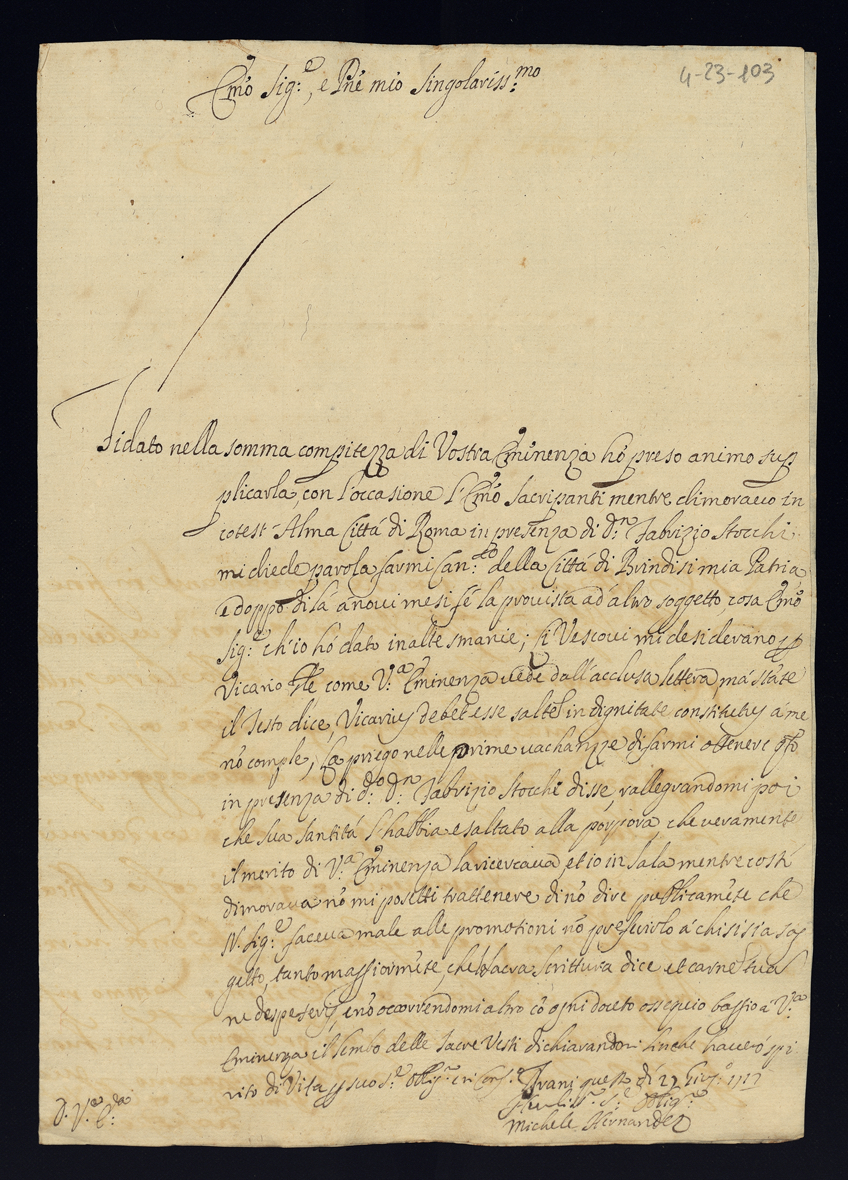 4-23-103
Emo Sig:e, e Pñe mio Singolariss:mo
Fidato nella somma compitezza di Vostra Eminenza hò preso animo sup
plicarla, con l'occasione l'Emo Sacripanti mentre dimoravo in
cotest'Alma Città di Roma in presenza di D:n Fabrizio Stocchi
mi diede parola farmi Can:co della Città di Brindisi mia Patria,
e doppo di là à novi mesi fè la provista ad altro soggetto, cosa Emo
Sig:e ch'io hò dato in alte smanie; li Vescovi mi desiderano p
Vicario Gñle come V:a Eminenza vede dall'acclusa lettera, mà stãte
il Testo dice, Vicarius debet esse saltẽ in dignitate constitutus à me
nõ comple, la priego nelle prime vachanze di farmi ottenere qto
in presenza di d:o D:n Fabrizio Stocchi disse, rallegrandomi poi
che Sua Santità l'habbia esaltato alla porpora, che veramente
il merito di V:a Eminenza la ricercava, et io in Sala mentre costì
dimorava nõ mi potetti trattenere di nõ dire publicamẽte che
N. Sig:e faceva male alle promotioni nõ preferirlo à chi si sia sog
getto, tanto maggiormẽte, che la Sacra Scrittura dice et carnẽ tuã
ne despexeris, e nõ occorrendomi altro cõ ogni doveto ossequio baggio à V:a
Eminenza il lembo delle Sacre Vesti dichiarandomi finche haverò spi
rito di Vita p suo S:e Trani questo dì 27
S:e Oblig:mo
D. V:a E:za
Michele Hernandez